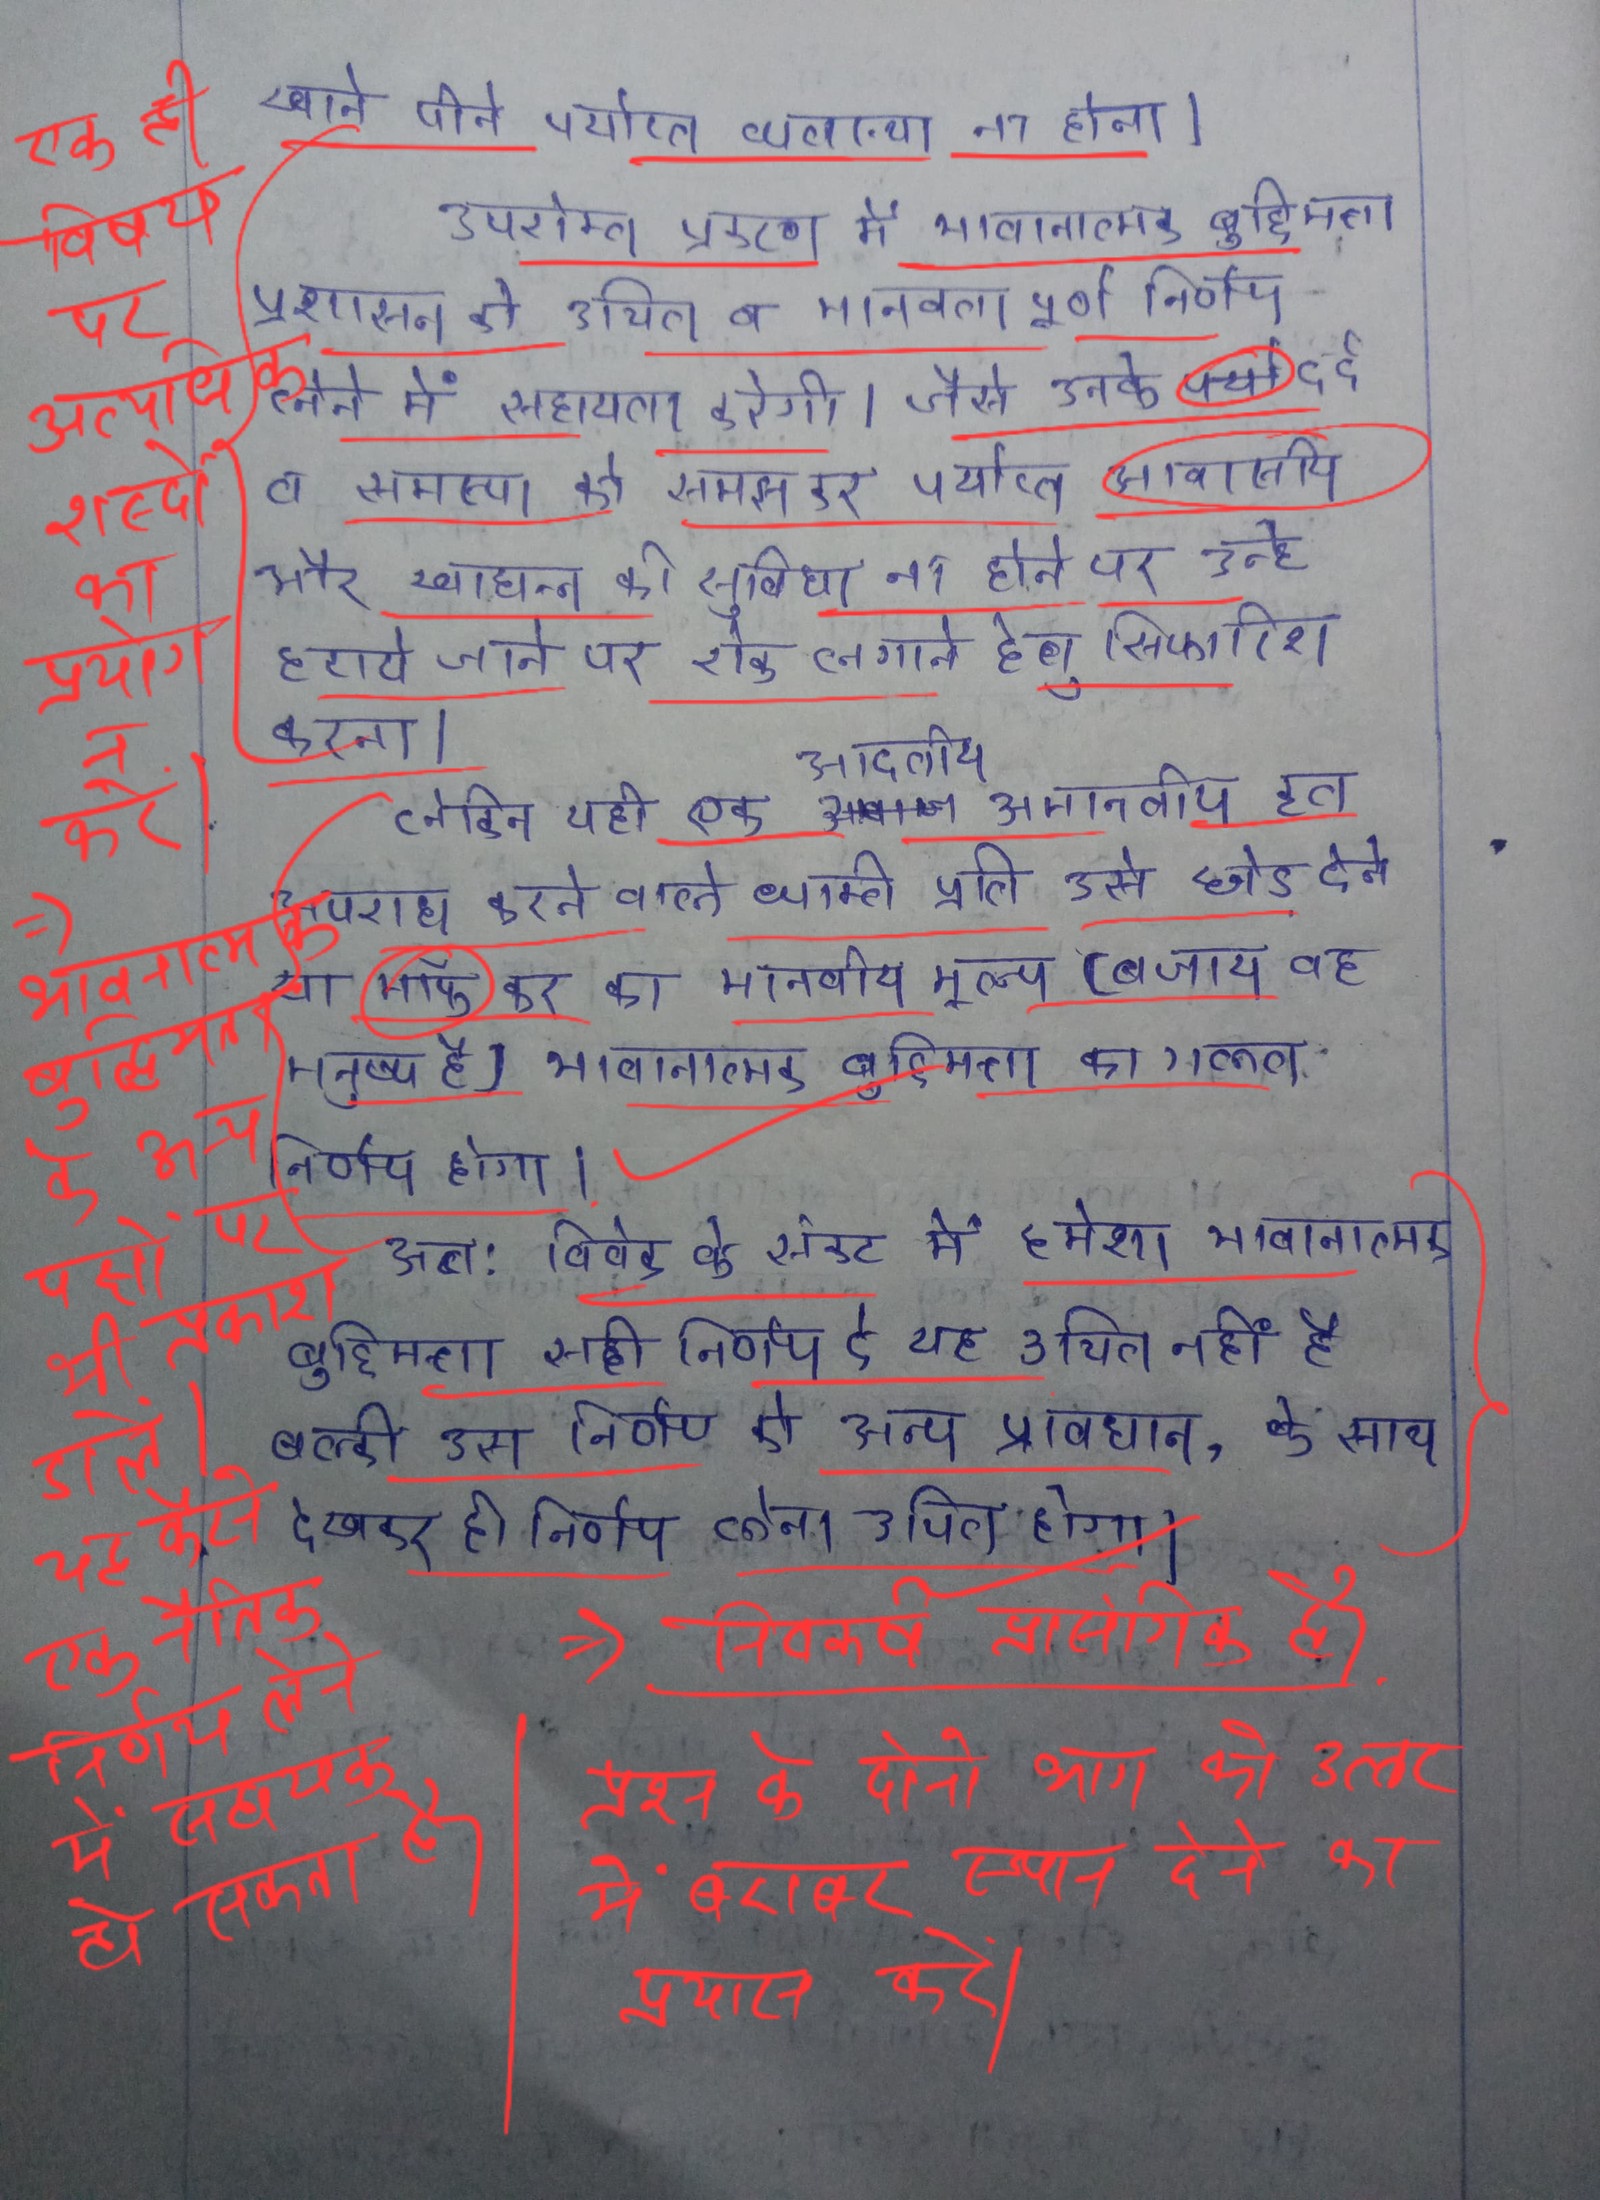 खाने पीने पर्याप्त व्यवस्था ना होना।
उपरोक्त प्रकरण में भावानात्मक बुद्दिमत्ता
प्रशासन को उचित व मानवता पूर्ण निर्णय
लेने में सहायता करेगी। जैसे उनके दर्द
व समस्या को समझकर पर्याप्त आवासीय
और खाद्यन्न की सुविधा ना होने पर उन्हे
हटाये जाने पर रोक लगाने हेतु सिफारिश
करना।
आदतीय
लेकिन यही एक अमानवीय कृत
अपराध करने वाले व्यक्ति प्रति उसे छोड देने
या मॉफ कर का मानवीय मूल्य (बजाय वह
मनुष्य है) भावानात्मक बुद्दिमत्ता का गलत
निर्णय होगा।
अतः विवेक के संकट में हमेशा भावानात्मक
बुद्दिमत्ता सही निर्णय दे यह उचित नहीं है
बल्की उस निर्णय को अन्य प्रावधान, के साथ
देखकर ही निर्णय लेना उचित होगा।
एक ही
विषय
पर
अत्याधिक
शब्दों
का
प्रयोग
न
करें।
⇒
भावनात्मक
बुद्धिमत्ता
के अन्य
पक्षों पर
भी प्रकाश
डालें।
यह कैसे
एक नैतिक
निर्णय लेने
में सहायक
हो सकता है।
⇒ निष्कर्ष प्रासंगिक है।
प्रश्न के दोनो भाग को उत्तर
में बराबर स्थान देने का
प्रयास करें।